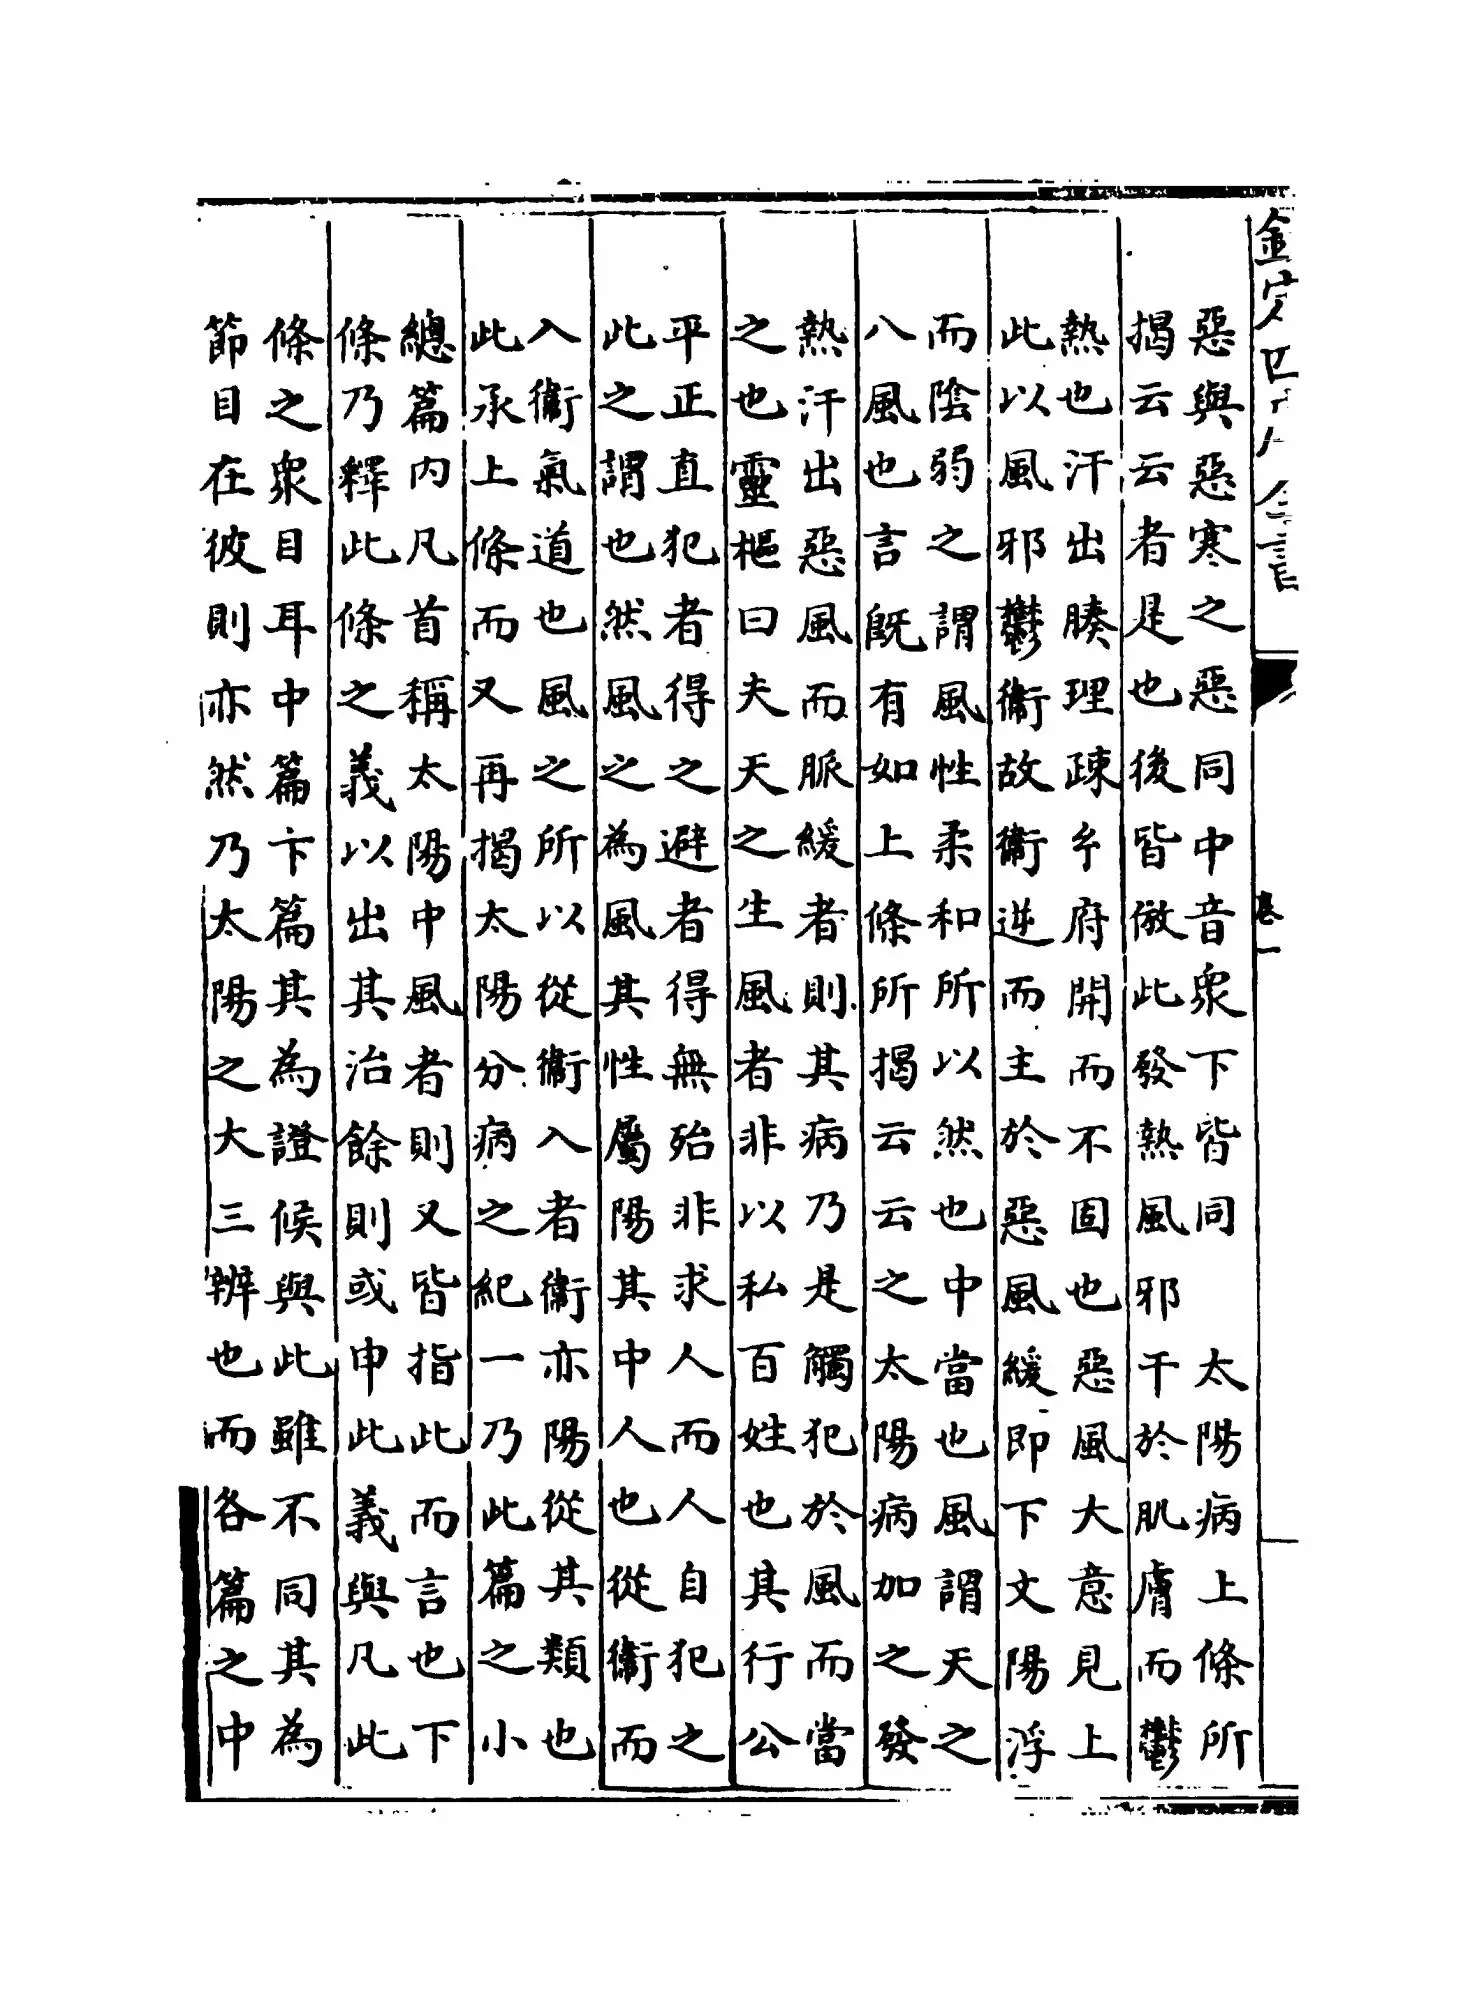 欽定四庫全書
卷一
惡與惡寒之惡同中音衆下皆同　太陽病上條所
揭云云者是也後皆倣此發熱風邪干於肌膚而鬱
熱也汗出腠理疎玄府開而不固也惡風大意見上
此以風邪鬱衞故衞逆而主於惡風緩即下文陽浮
而陰弱之謂風性柔和所以然也中當也風謂天之
八風也言旣有如上條所揭云云之太陽病加之發
熱汗出惡風而脈緩者則其病乃是觸犯於風而當
之也靈樞曰夫天之生風者非以私百姓也其行公
平正直犯者得之避者得無殆非求人而人自犯之
此之謂也然風之為風其性屬陽其中人也從衞而
入衞氣道也風之所以從衞入者衞亦陽從其類也
此承上條而又再揭太陽分病之紀一乃此篇之小
總篇內凡首稱太陽中風者則又皆指此而言也下
條乃釋此條之義以出其治餘則或申此義與凡此
條之衆目耳中篇卞篇其為證候與此雖不同其為
節目在彼則亦然乃太陽之大三辨也而各篇之中